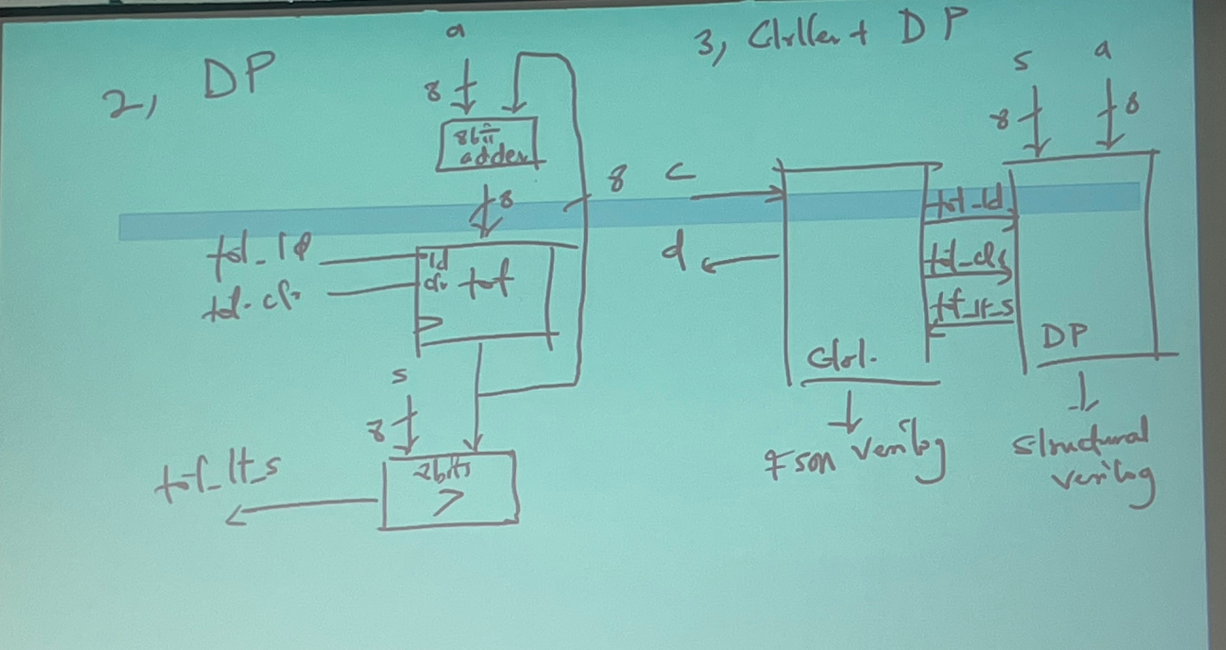 2, DP
a
8
8bit
adder
8
8
tot_ld
tot_clr
ld
clr
tot
s
8
tot_lt_s
8bits
>
3, Ctrller + DP
s
a
8
8
c
d
tot_ld
tot_clr
tot_lt_s
Ctrl.
DP
FSM verilog
Structural
verilog